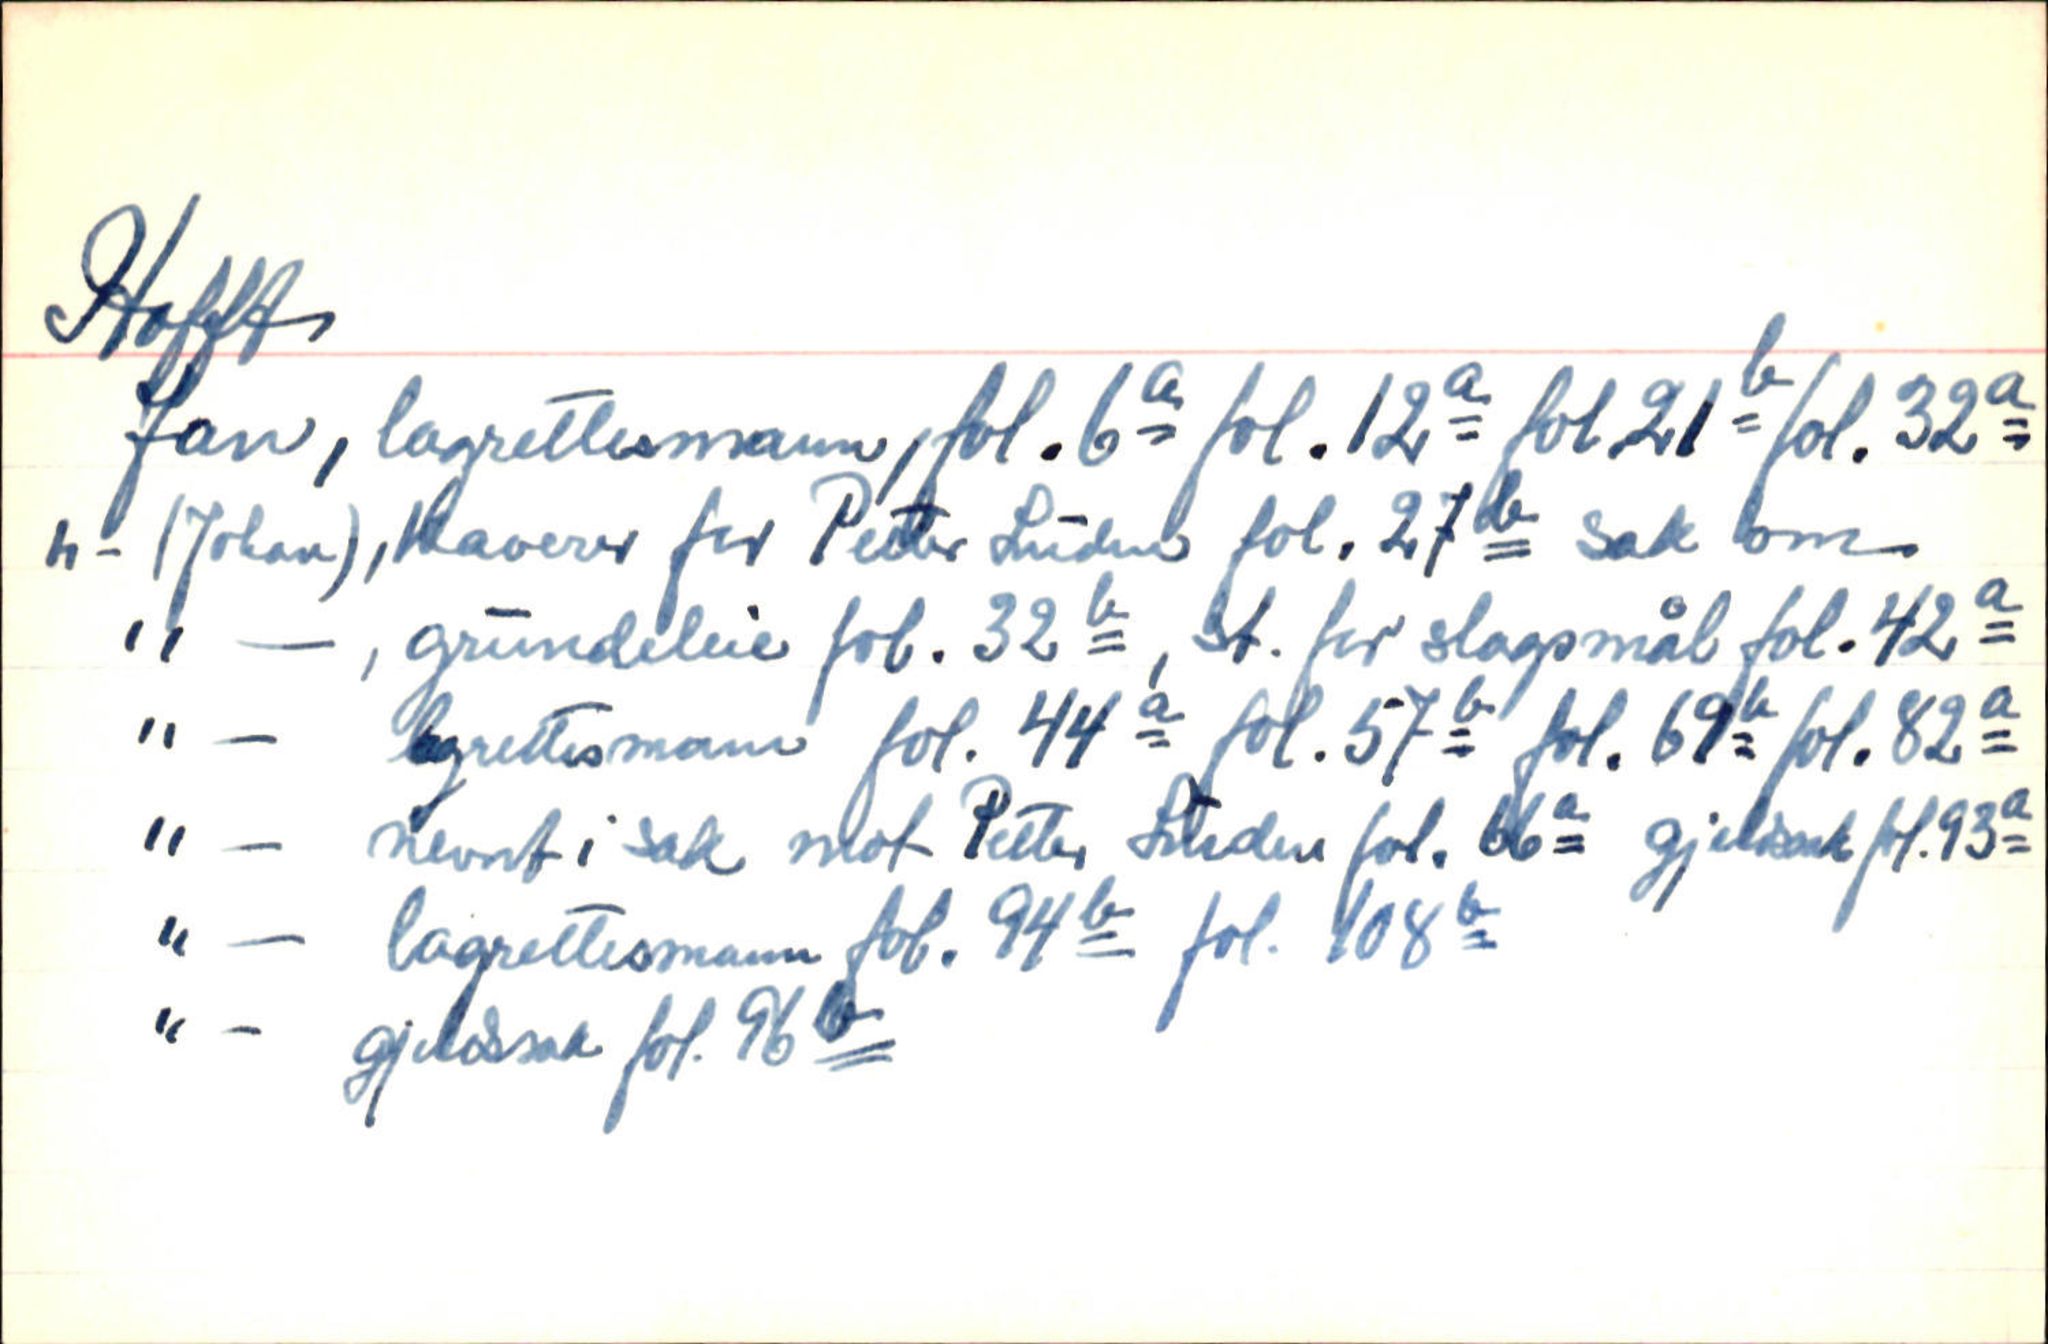 Hofft
Jan, lagrettesmann, fol. 6a fol. 12a fol 21b fol. 32a
"- (Johan), kaverer for Petter Lüden fol. 27b sak om
" — , grundeleie fol. 32b, st. for slagsmål fol. 42a
" — lagrettesmann fol. 44a fol. 57b fol. 69b fol. 82a
" — nevnt i sak mot Petter Lüden fol. 66a gjeldssak fol. 93a
" — lagrettesmann fol. 94b fol. 108b
" — gjeldssak fol. 96b